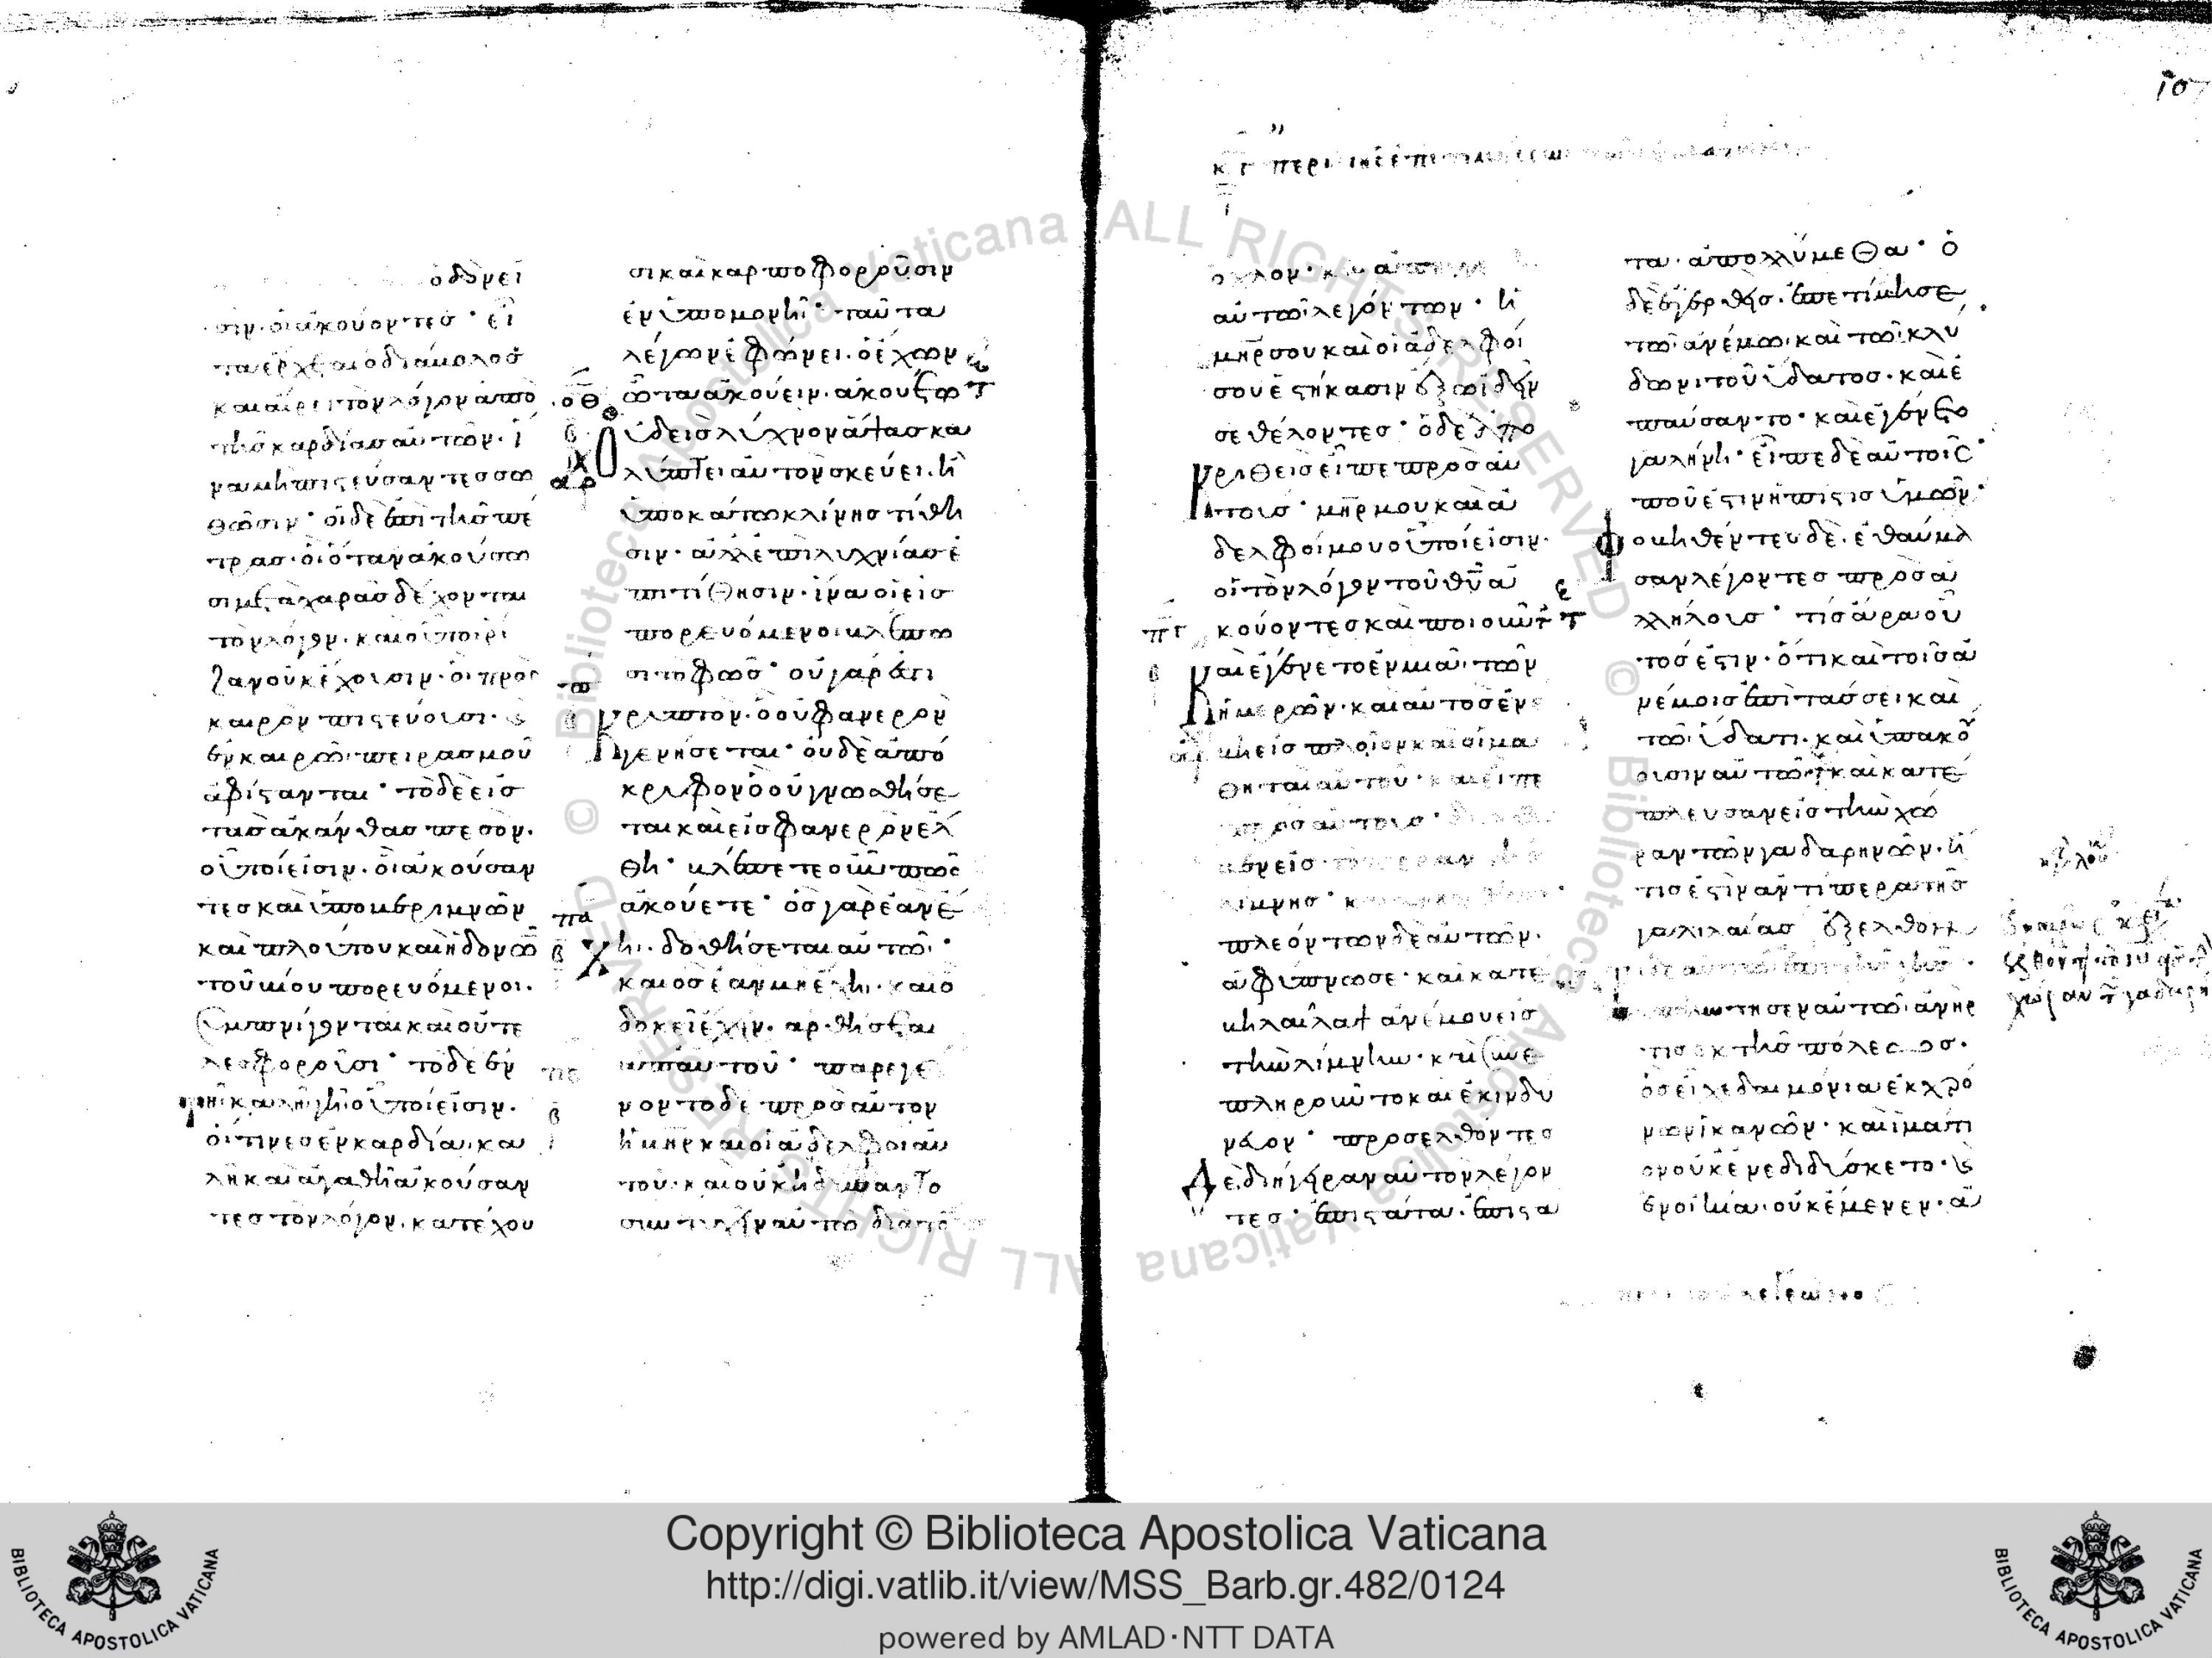 ὁδόν εἰ
σιν οἱ ἀκούοντες · εἶ
τα ἔρχεται ὁ διάβολος
καὶ αἴρει τὸν λόγον ἀπὸ
τῆς καρδίας αὐτῶν · ἵ
να μὴ πιστεύσαντες σω
θῶσιν · οἱ δὲ ἐπὶ τῆς πέ
τρας · οἳ ὅταν ἀκούσω
σι μετὰ χαρᾶς δέχονται
τὸν λόγον · καὶ οὗτοι ῥί
ζαν οὐκ ἔχουσιν · οἳ πρὸς
καιρὸν πιστεύουσι · καὶ
ἐν καιρῷ πειρασμοῦ
ἀφίστανται · τὸ δὲ εἰς
τὰς ἀκάνθας πεσόν ·
οὗτοί εἰσιν · οἱ ἀκούσαν
τες καὶ ὑπὸ μεριμνῶν
καὶ πλούτου καὶ ἡδονῶν
τοῦ βίου πορευόμενοι ·
συμπνίγονται καὶ οὐ τε
λεσφοροῦσι · τὸ δὲ ἐν
τῇ καλῇ γῇ οὗτοί εἰσιν ·
οἵτινες ἐν καρδίᾳ κα
λῇ καὶ ἀγαθῇ ἀκούσαν
τες τὸν λόγον · κατέχου
σι καὶ καρποφοροῦσιν
ἐν ὑπομονῇ · ταῦτα
λέγων ἐφώνει · ὁ ἔχων
ὦτα ἀκούειν · ἀκουέτω
οθ
Οὐδεὶς λύχνον ἅψας κα
λύπτει αὐτὸν σκεύει · ἢ
ὑποκάτω κλίνης τίθη
σιν · ἀλλ' ἐπὶ λυχνίας ἐ
πιτίθησιν · ἵνα οἱ εἰσ
πορευόμενοι βλέπω
σι τὸ φῶς · οὐ γάρ ἐστι
π
κρυπτὸν · ὃ οὐ φανερὸν
γενήσεται · οὐδὲ ἀπό
κρυφον ὃ οὐ γνωσθήσε
ται καὶ εἰς φανερὸν ἔλ
θῃ · βλέπετε οὖν πῶς
πα
ἀκούετε · ὃς γὰρ ἐὰν ἔ
χῃ · δοθήσεται αὐτῷ ·
καὶ ὃς ἐὰν μὴ ἔχῃ · καὶ ὃ
δοκεῖ ἔχειν · ἀρθήσεται
ἀπ' αὐτοῦ · παρεγέ
νοντο δὲ πρὸς αὐτὸν
ἡ μηρ καὶ οἱ ἀδελφοὶ αὐ
τοῦ · καὶ οὐκ ἠδύναντο
συντυχεῖν αὐτῷ διὰ τὸν
107
κγ περὶ τῆς ἐπιτιμήσεως
ὄχλον · καὶ ἀπηγγέλη
αὐτῷ λεγόντων · ἡ
μηρ σου καὶ οἱ ἀδελφοί
σου ἑστήκασιν ἔξω ἰδεῖν
σε θέλοντες · ὁ δὲ ἀπο
κριθεὶς εἶπε πρὸς αὐ
τούς · μηρ μου καὶ ἀ
δελφοί μου οὗτοί εἰσιν ·
οἱ τὸν λόγον τοῦ θυ ἀ
πγ
κούοντες καὶ ποιοῦντες
Καὶ ἐγένετο ἐν μιᾷ τῶν
ἡμερῶν · καὶ αὐτὸς ἐνέ
βη εἰς πλοῖον καὶ οἱ μα
θηταὶ αὐτοῦ · καὶ εἶπε
πρὸς αὐτούς · διέλθω
μεν εἰς τὸ πέραν τῆς
λίμνης · καὶ
πλεόντων δὲ αὐτῶν ·
ἀφύπνωσε · καὶ κατέ
βη λαῖλαψ ἀνέμου εἰς
τὴν λίμνην · καὶ συνε
πληροῦντο καὶ ἐκινδύ
νευον · προσελθόντες
δὲ διήγειραν αὐτὸν λέγον
τες · ἐπιστάτα · ἐπιστά
τα · ἀπολλύμεθα · ὁ
δὲ ἐγερθεὶς · ἐπετίμησε
τῷ ἀνέμῳ · καὶ τῷ κλύ
δωνι τοῦ ὕδατος · καὶ ἐ
παύσαντο · καὶ ἐγένετο
γαλήνη · εἶπε δὲ αὐτοῖς ·
ποῦ ἐστιν ἡ πίστις ὑμῶν ·
φοβηθέντες δὲ · ἐθαύμα
σαν λέγοντες πρὸς ἀ
λλήλους · τίς ἄρα οὗ
τός ἐστιν · ὅτι καὶ τοῖς ἀ
νέμοις ἐπιτάσσει καὶ
τῷ ὕδατι · καὶ ὑπακού
ουσιν αὐτῷ · καὶ κατέ
πλευσαν εἰς τὴν χώ
ραν τῶν γαδαρηνῶν · ἥ
τις ἐστὶν ἀντίπερα τῆς
γαλιλαίας ἐξελθόντι
δὲ αὐτῷ ἐπὶ τὴν γῆν ·
ὑπήντησεν αὐτῷ ἀνήρ
τις ἐκ τῆς πόλεως ·
ὃς εἶχε δαιμόνια ἐκ χρό
νων ἱκανῶν · καὶ ἱμάτι
ον οὐκ ἐνεδιδύσκετο · καὶ
ἐν οἰκίᾳ οὐκ ἔμενεν · ἀ
Biblioteca Apostolica Vaticana ALL RIGHTS RESERVED ©
Biblioteca Apostolica Vaticana ALL RIGHTS RESERVED ©
BIBLIOTECA APOSTOLICA VATICANA
Copyright © Biblioteca Apostolica Vaticana
http://digi.vatlib.it/view/MSS_Barb.gr.482/0124
powered by AMLAD·NTT DATA
BIBLIOTECA APOSTOLICA VATICANA